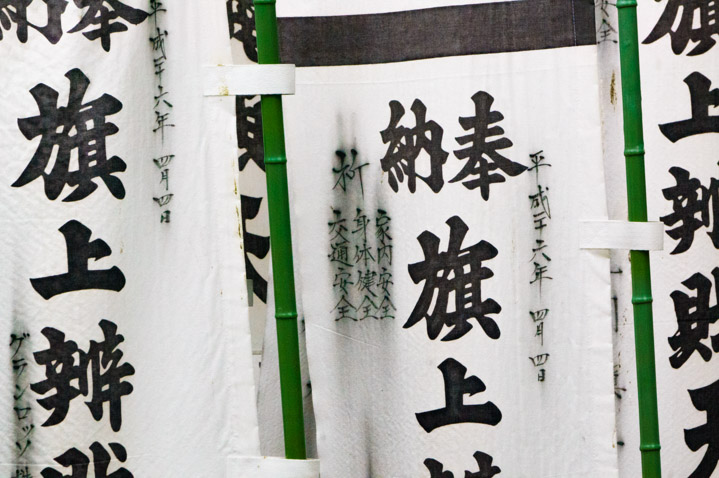 旗上辨財天
平成二十六年 四月四日
奉納
旗上
祈
家内安全
身体健全
交通安全
平成二十六年 四月四日
旗上辨
グランロッソ